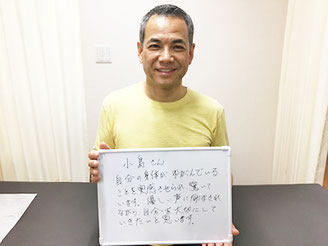 小島さん
自分の身体が ゆがんでいる
ことを実感させられ、驚いて
います。優しい声に励まされ
ながら、自分を大切にして
いきたいと思います。